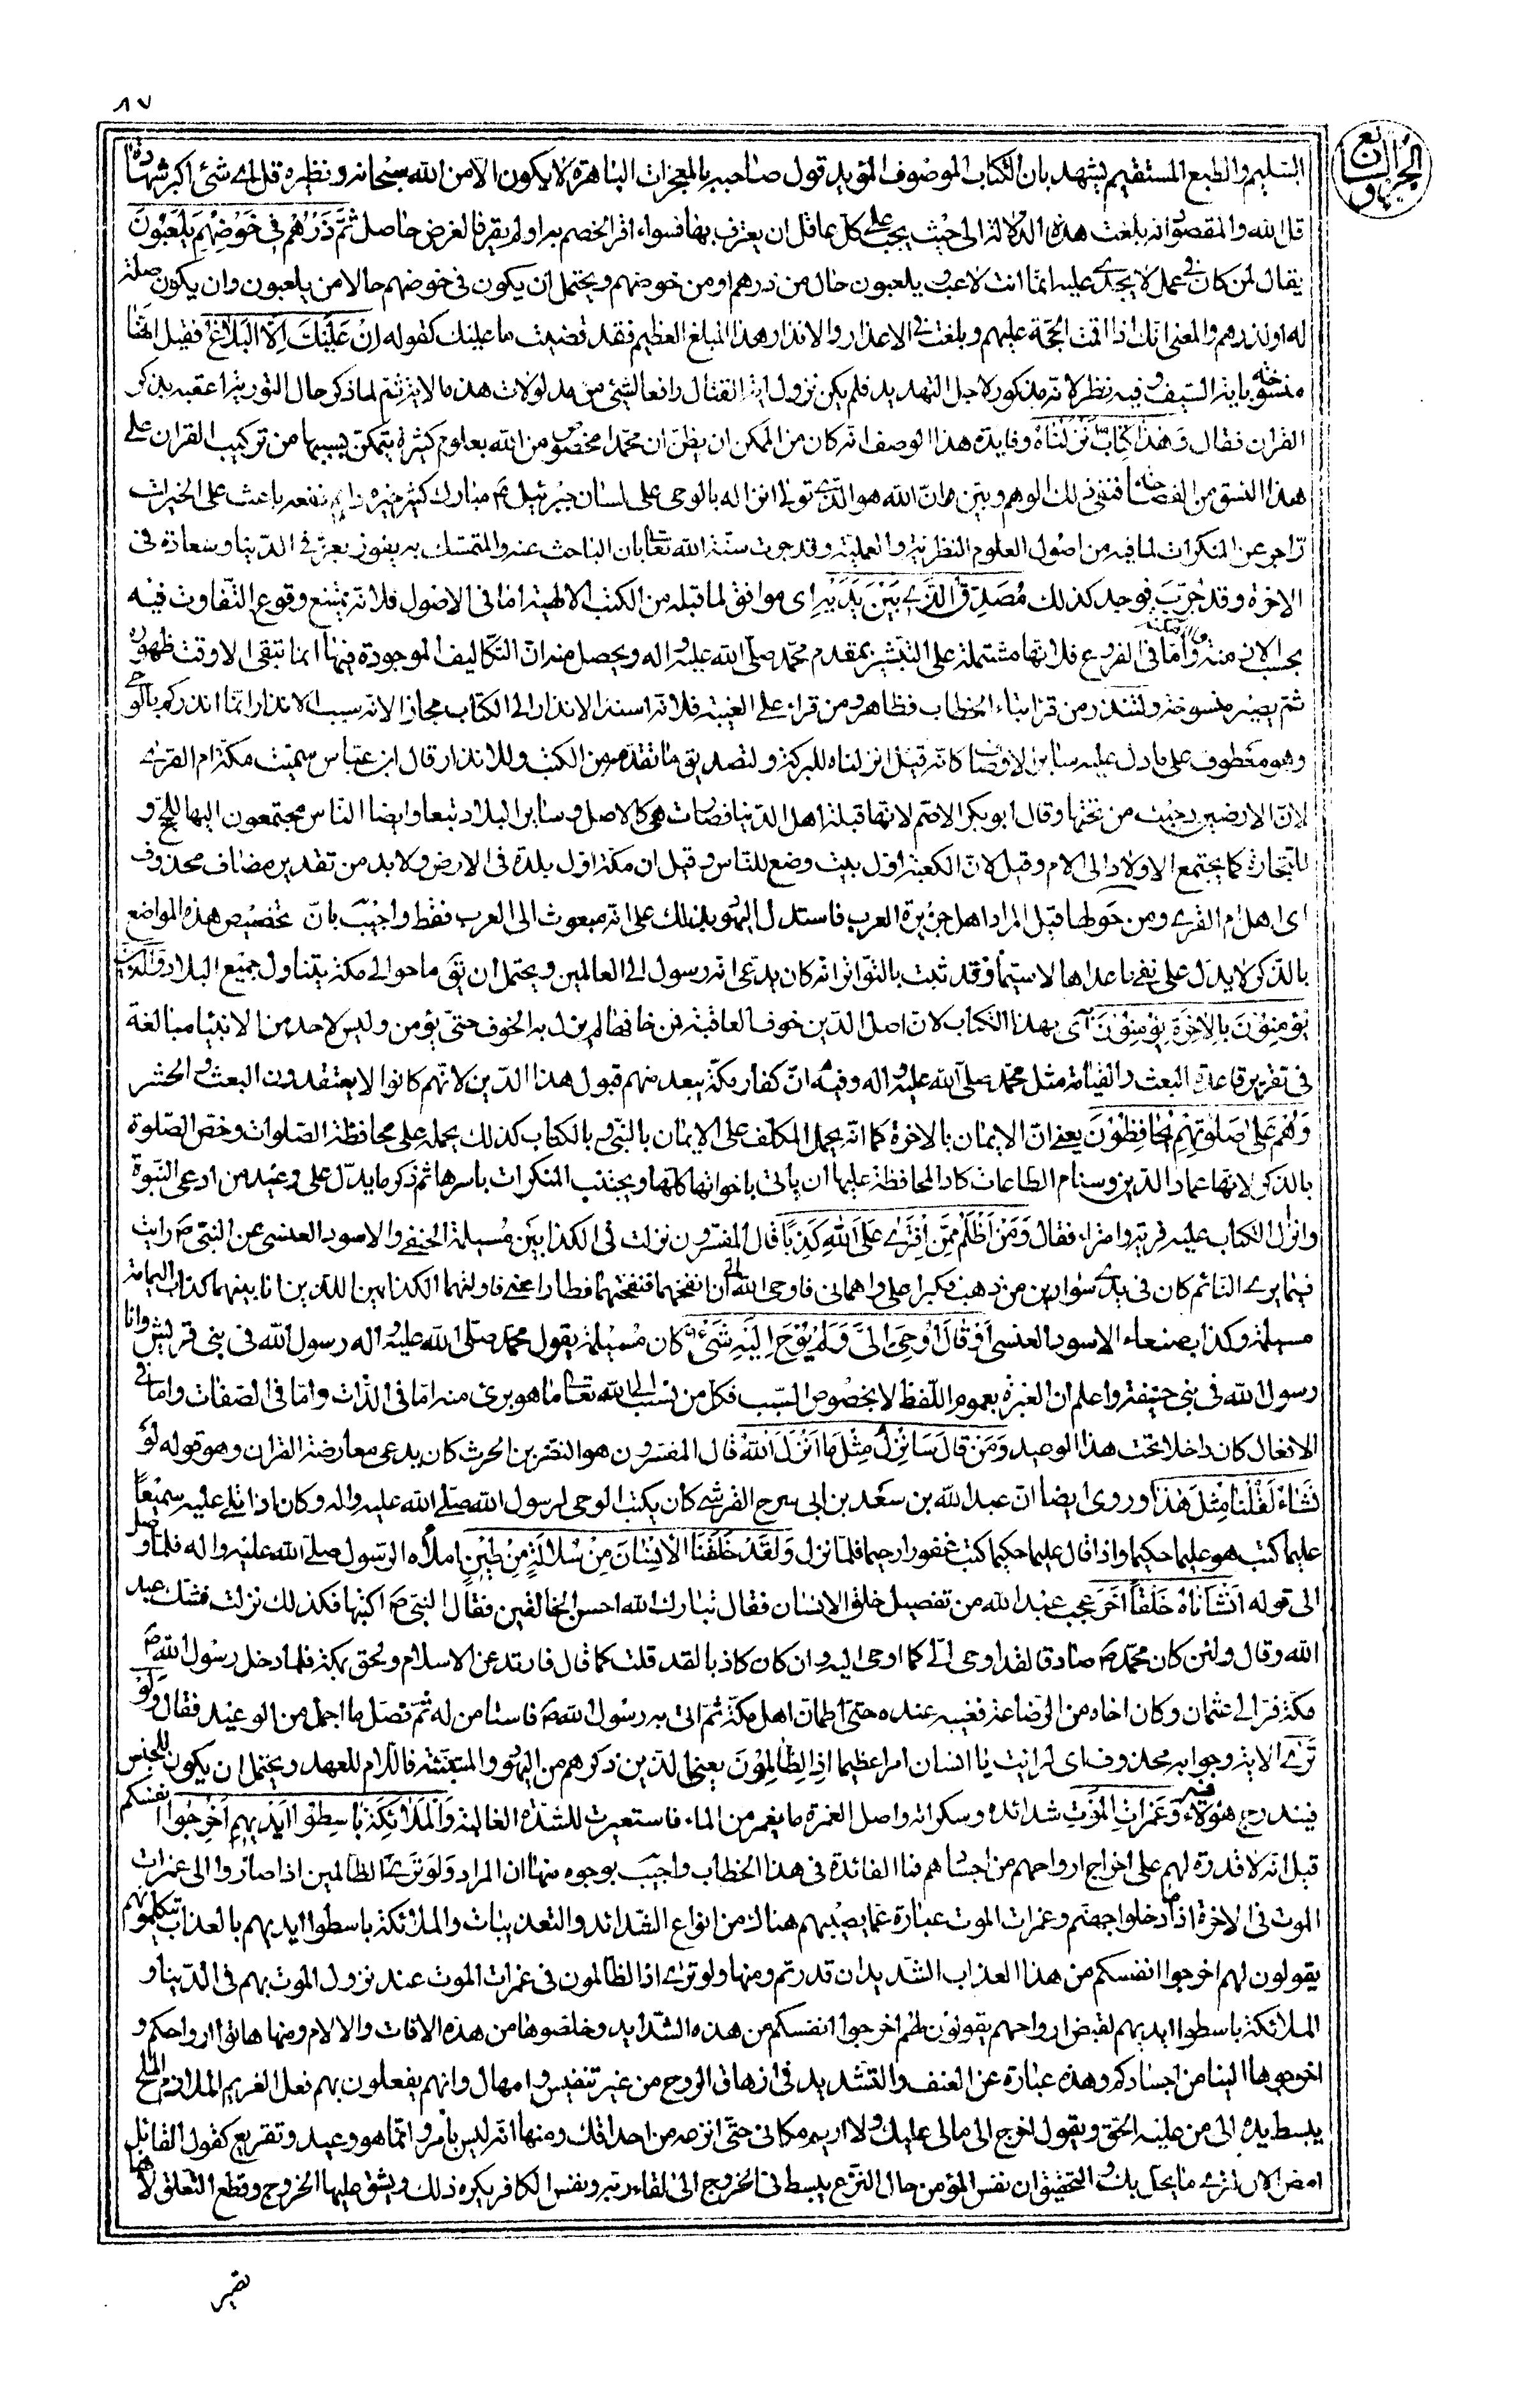 ٨٧
الجزء السابع
السليم والطبع المستقيم يشهد بان الكتاب الموصوف المؤيد قول صاحبه بالمعجزات الباهرة لا يكون الا من الله سبحانه ونظيره قل اى شئ اكبر شهادة
قل الله والمقصود انه بلغت هذه الدلالة الى حيث يجب على كل عاقل ان يعترف بها فسواء اقر الخصم به او لم يقر فالغرض حاصل ثُمَّ ذَرْهُمْ فِي خَوْضِهِمْ يَلْعَبُونَ
يقال لمن كان فى عمل لا يجدى عليه انما انت لاعب ويلعبون حال من ذرهم او من خوضهم ويحتمل ان يكون فى خوضهم حالا من يلعبون وان يكون صلة
له او لذرهم والمعنى انك اذا اقمت الحجة عليهم وبلغت فى الاعذار والانذار هذا المبلغ العظيم فقد قضيت ما عليك كقوله اِنْ عَلَيْكَ اِلَّا الْبَلَاغُ فقيل انها
منسوخة باية السيف وفيه نظر لانه مذكور لاجل التهديد فلم يكن نزول اية القتال رافعا لشئ من مدلولات هذه الاية ثم لما ذكر حال التورية اعقبه بذكر
القران فقال وَهَذَا كِتَابٌ نَزَّلْنَاهُ وفايدة هذا الوصف انه كان من الممكن ان يظن ان محمدا مخصوص من الله بعلوم كثيرة يتمكن بسببها من تركيب القران على
هذا النسق من الفصاحة فنفى ذلك الوهم وبين ان الله هو الذى تولى انزاله بالوحى على لسان جبرئيل ع مبارك كثير خيره دايم نفعه باعث على الخيرات
زاجر عن المنكرات لما فيه من اصول العلوم النظرية والعملية وقد جرت سنة الله تعالى بان الباحث عنه والمتمسك به يفوز بعز فى الدنيا وسعادة فى
الاخرة وقد جرب فوجد كذلك مُصَدِّقُ الَّذِي بَيْنَ يَدَيْهِ اى موافق لما قبله من الكتب الالهية اما فى الاصول فلانه يمتنع وقوع التفاوت فيه
بحسب الازمنة والامكنة واما فى الفروع فلانها مشتملة على التبشير بمقدم محمد صلى الله عليه واله ويحصل منه ان التكاليف الموجودة فيها انما تبقى الا وقت ظهوره
ثم يصير منسوخة ولتنذر من قرا بتاء الخطاب فظاهر ومن قراء على الغيبة فلانه اسند الانذار الى الكتاب مجازا لانه سبب الانذار انما انذركم بالوحى
وهو معطوف على ما دل عليه سابر الاوصاف كانه قيل انزلناه للبركة ولتصديق ما تقدمه من الكتب وللانذار قال ابن عباس سميت مكة ام القرى
لان الارضين دحيت من تحتها وقال ابو بكر الاصم لانها قبلة اهل الدنيا فصارت هى كالاصل وساير البلاد تبعا وايضا الناس مجتمعون اليها للحج و
للتجارة كما يجتمع الاولاد الى الام وقيل لان الكعبة اول بيت وضع للناس وقيل ان مكة اول بلدة فى الارض ولا بد من تقدير مضاف محذوف
اى اهل ام القرى ومن حولها قيل المراد اهل جزيرة العرب فاستدل اليهود بذلك على انه مبعوث الى العرب فقط واجيب بان تخصيص هذه المواضع
بالذكر لا يدل على نفى ما عداها لا سيما وقد ثبت بالتواتر انه كان يدعى انه رسول الى العالمين ويحتمل ان يق ما حوالى مكة يتناول جميع البلاد وَالَّذِينَ
يُؤْمِنُونَ بِالْآخِرَةِ يُؤْمِنُونَ اى بهذا الكتاب لان اصل الدين خوف العاقبة فمن خافها لم يزل به الخوف حتى يؤمن وليس لاحد من الانبياء مبالغة
فى تقرير قاعدة البعث والقيامة مثل محمد صلى الله عليه واله وفيه ان كفار مكة يبعد منهم قبول هذا الدين لانهم كانوا لا يعتقدون البعث والحشر
وَهُمْ عَلَى صَلَوتِهِمْ يُحَافِظُونَ يعنى ان الايمان بالاخرة كما انه يحمل المكلف على الايمان بالنبى وبالكتاب كذلك يحمله على محافظة الصلوات وخص الصلوة
بالذكر لانها عماد الدين وسنام الطاعات كاد المحافظة عليها ان ياتى باخواتها كلها ويجتنب المنكرات باسرها ثم ذكر ما يدل على وعيد من ادعى النبوة
وانزال الكتاب عليه فرية وامراء فقال وَمَنْ اَظْلَمُ مِمَّنِ افْتَرَى عَلَى اللهِ كَذِبًا قال المفسرون نزلت فى الكذابين مسيلمة الحنفى والاسود العنسى عن النبى ص رايت
فيما يرى النائم كان فى يدى سوارين من ذهب فكبرا على واهمانى فاوحى الله الى ان انفخهما فنفختهما فطارا عنى فاولتهما الكذابين اللذين انا بينهما كذاب اليمامة
مسيلمة وكذاب صنعاء الاسود العنسى اَوْ قَالَ اُوحِيَ اِلَيَّ وَلَمْ يُوحَ اِلَيْهِ شَيْءٌ كان مسيلمة يقول محمد صلى الله عليه واله رسول الله فى بنى قريش وانا
رسول الله فى بنى حنيفة واعلم ان العبرة بعموم اللفظ لا بخصوص السبب فكل من نسب الى الله تعالى ما هو برئ منه اما فى الذات واما فى الصفات واما فى
الافعال كان داخلا تحت هذا الوعيد وَمَنْ قَالَ سَاُنْزِلُ مِثْلَ مَا اَنْزَلَ اللهُ قال المفسرون هو النضر بن الحرث كان يدعى معارضة القران وهو قوله لَوْ
نَشَاءُ لَقُلْنَا مِثْلَ هَذَا وروى ايضا ان عبد الله بن سعد بن ابى سرح القرشى كان يكتب الوحى لرسول الله صلى الله عليه واله وكان اذا تلى عليه سميعا
عليما كتب هو عليما حكيما واذا قال عليما حكيما كتب غفورا رحيما فلما نزل وَلَقَدْ خَلَقْنَا الْاِنْسَانَ مِنْ سُلَالَةٍ مِنْ طِينٍ املاه الرسول صلى الله عليه واله فلما وصل
الى قوله اَنْشَأْنَاهُ خَلْقًا اٰخَرَ عجب عبد الله من تفصيل خلق الانسان فقال تبارك الله احسن الخالقين فقال النبى ص اكتبها فكذلك نزلت فشك عبد
الله وقال ولئن كان محمد ص صادقا لقد اوحى الى كما اوحى اليه وان كان كاذبا لقد قلت كما قال فارتد عن الاسلام ولحق بمكة فلما دخل رسول الله ص
مكة فر الى عثمان وكان اخاه من الرضاعة فغيبه عنده حتى اطمان اهل مكة ثم اتى به رسول الله ص فاستامن له ثم فصل ما اجمل من الوعيد فقال وَلَوْ
تَرَى الاية وجوابه محذوف اى لرايت يا انسان امرا عظيما اِذِ الظَّالِمُونَ يعنى الذين ذكرهم من اليهود والمتنبئة فاللام للعهد ويحتمل ان يكون للجنس
فيندرج فيه هؤلاء وَغَمَرَاتِ الْمَوْتِ شدائده وسكراته واصل الغمرة ما يغمر من الماء فاستعيرت للشدة الغالبة وَالْمَلَائِكَةُ بَاسِطُوا اَيْدِيهِمْ اَخْرِجُوا انفسكم
قيل انه لا قدرة لهم على اخراج ارواحهم من اجسادهم فما الفائدة فى هذا الخطاب واجيب بوجوه منها ان المراد وَلَوْ تَرَى الظالمين اذا صاروا الى غمرات
الموت فى الاخرة اذا دخلوا جهنم وغمرات الموت عبارة عما يصيبهم هناك من انواع الشدائد والتعذيبات والملائكة باسطوا ايديهم بالعذاب يكلمونهم
يقولون لهم اخرجوا انفسكم من هذا العذاب الشديد ان قدرتم ومنها ولو ترى اذ الظالمون فى غمرات الموت عند نزول الموت بهم فى الدنيا و
الملائكة باسطوا ايديهم لقبض ارواحهم يقولون لهم اخرجوا انفسكم من هذه الشدايد وخلصوها من هذه الافات والالام ومنها هاتوا ارواحكم و
اخرجوها الينا من اجسادكم وهذه عبارة عن العنف والتشديد فى ازهاق الروح من غير تنفيس وامهال وانهم يفعلون بهم فعل الغريم الملازم الملح
يبسط يده الى من عليه الحق ويقول اخرج الى مالى عليك ولا اريم مكانى حتى انزعه من احداقك ومنها انه ليس بامر وانما هو وعيد وتقريع كقول القائل
امض الان لترى ما يحل بك والتحقيق ان نفس المؤمن حال النزع ينبسط فى الخروج الى لقاء ربه ونفس الكافر يكره ذلك ويشق عليها الخروج وقطع التعلق لانها